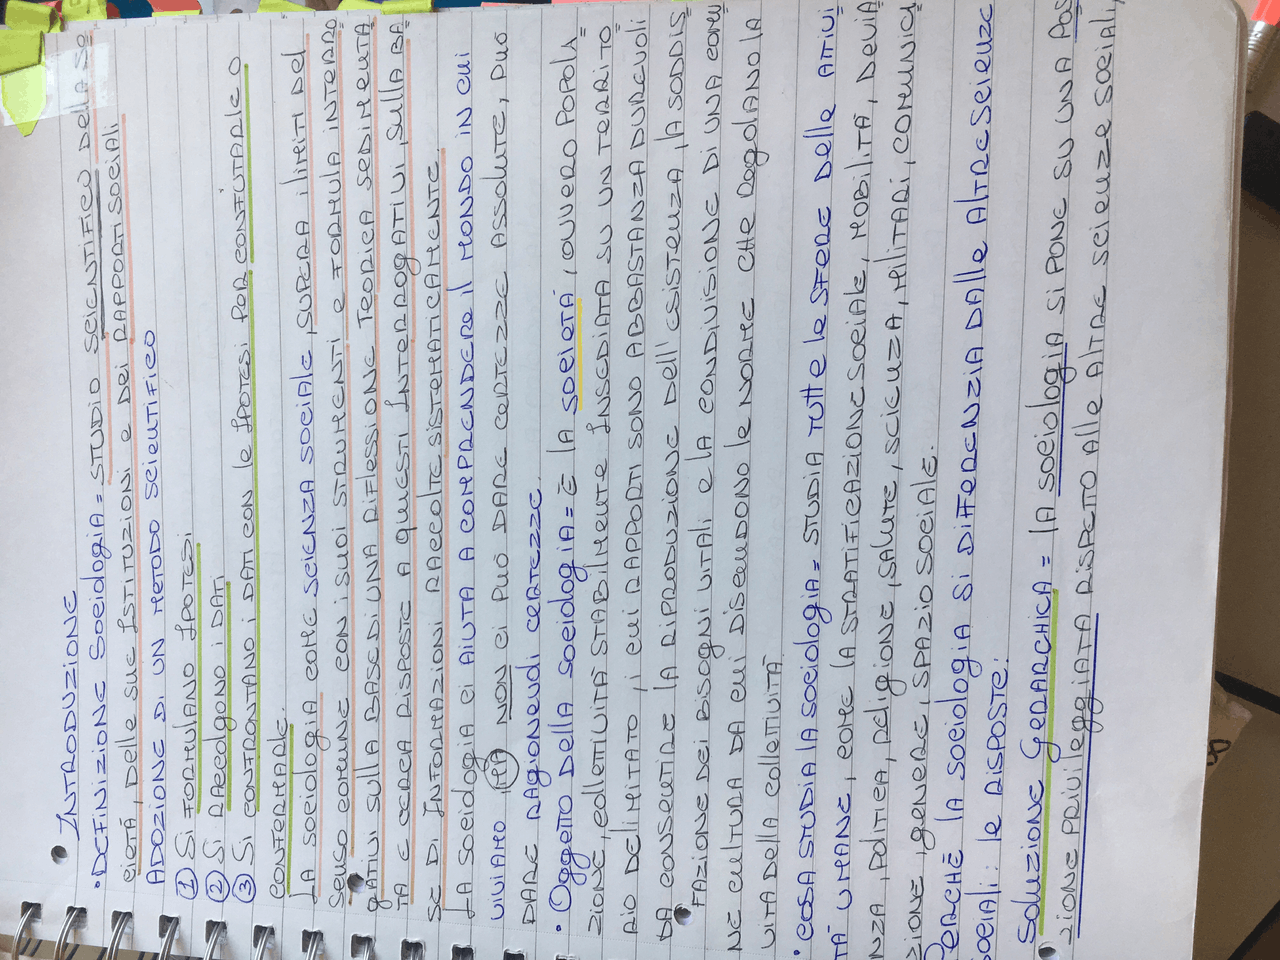 INTRODUZIONE
• DEFINIZIONE SOCIOLOGIA = STUDIO SCIENTIFICO DELLA SO
CIETÀ, DELLE SUE ISTITUZIONI e DEI RAPPORTI SOCIALI
ADOZIONE DI UN METODO SCIENTIFICO
1 SI FORMULANO IPOTESI
2 SI RACCOLGONO I DATI
3 SI CONFRONTANO I DATI CON LE IPOTESI PER CONFUTARLE O
CONFERMARLE.
LA SOCIOLOGIA COME SCIENZA SOCIALE, SUPERA I LIMITI DEL
SENSO COMUNE CON I SUOI STRUMENTI e FORMULA INTERRO
GATIVI SULLA BASE DI UNA RIFLESSIONE TEORICA SEDIMENTA
TA e CERCA RISPOSTE A QUESTI INTERROGATIVI, SULLA BA
SE DI INFORMAZIONI RACCOLTE SISTEMATICAMENTE.
LA SOCIOLOGIA CI AIUTA A COMPRENDERE IL MONDO IN CUI
VIVIAMO MA NON CI PUÒ DARE CERTEZZE ASSOLUTE, PUÒ
DARE RAGIONEVOLI CERTEZZE.
• OGGETTO DELLA SOCIOLOGIA = È LA SOCIETÀ, OVVERO POPOLA
ZIONE, COLLETTIVITÀ STABILMENTE INSEDIATA SU UN TERRITO
RIO DELIMITATO, I CUI RAPPORTI SONO ABBASTANZA DUREVOLI
DA CONSENTIRE LA RIPRODUZIONE DELL'ESISTENZA, LA SODDIS
FAZIONE DEI BISOGNI VITALI e LA CONDIVISIONE DI UNA COMU
NE CULTURA DA CUI DISCENDONO LE NORME CHE REGOLANO LA
VITA DELLA COLLETTIVITÀ
• COSA STUDIA LA SOCIOLOGIA = STUDIA TUTTE LE SFERE DELLE ATTIVI
TÀ UMANE, COME LA STRATIFICAZIONE SOCIALE, MOBILITÀ, DEVIA
NZA, POLITICA, RELIGIONE, SALUTE, SCIENZA, MILITARI, COMUNICA
ZIONE, GENERE, SPAZIO SOCIALE.
PERCHÈ LA SOCIOLOGIA SI DIFFERENZIA DALLE ALTRE SCIENZE
SOCIALI: LE RISPOSTE.
SOLUZIONE GERARCHICA = LA SOCIOLOGIA SI PONE SU UNA POS
IZIONE PRIVILEGGIATA RISPETTO ALLE ALTRE SCIENZE SOCIALI,